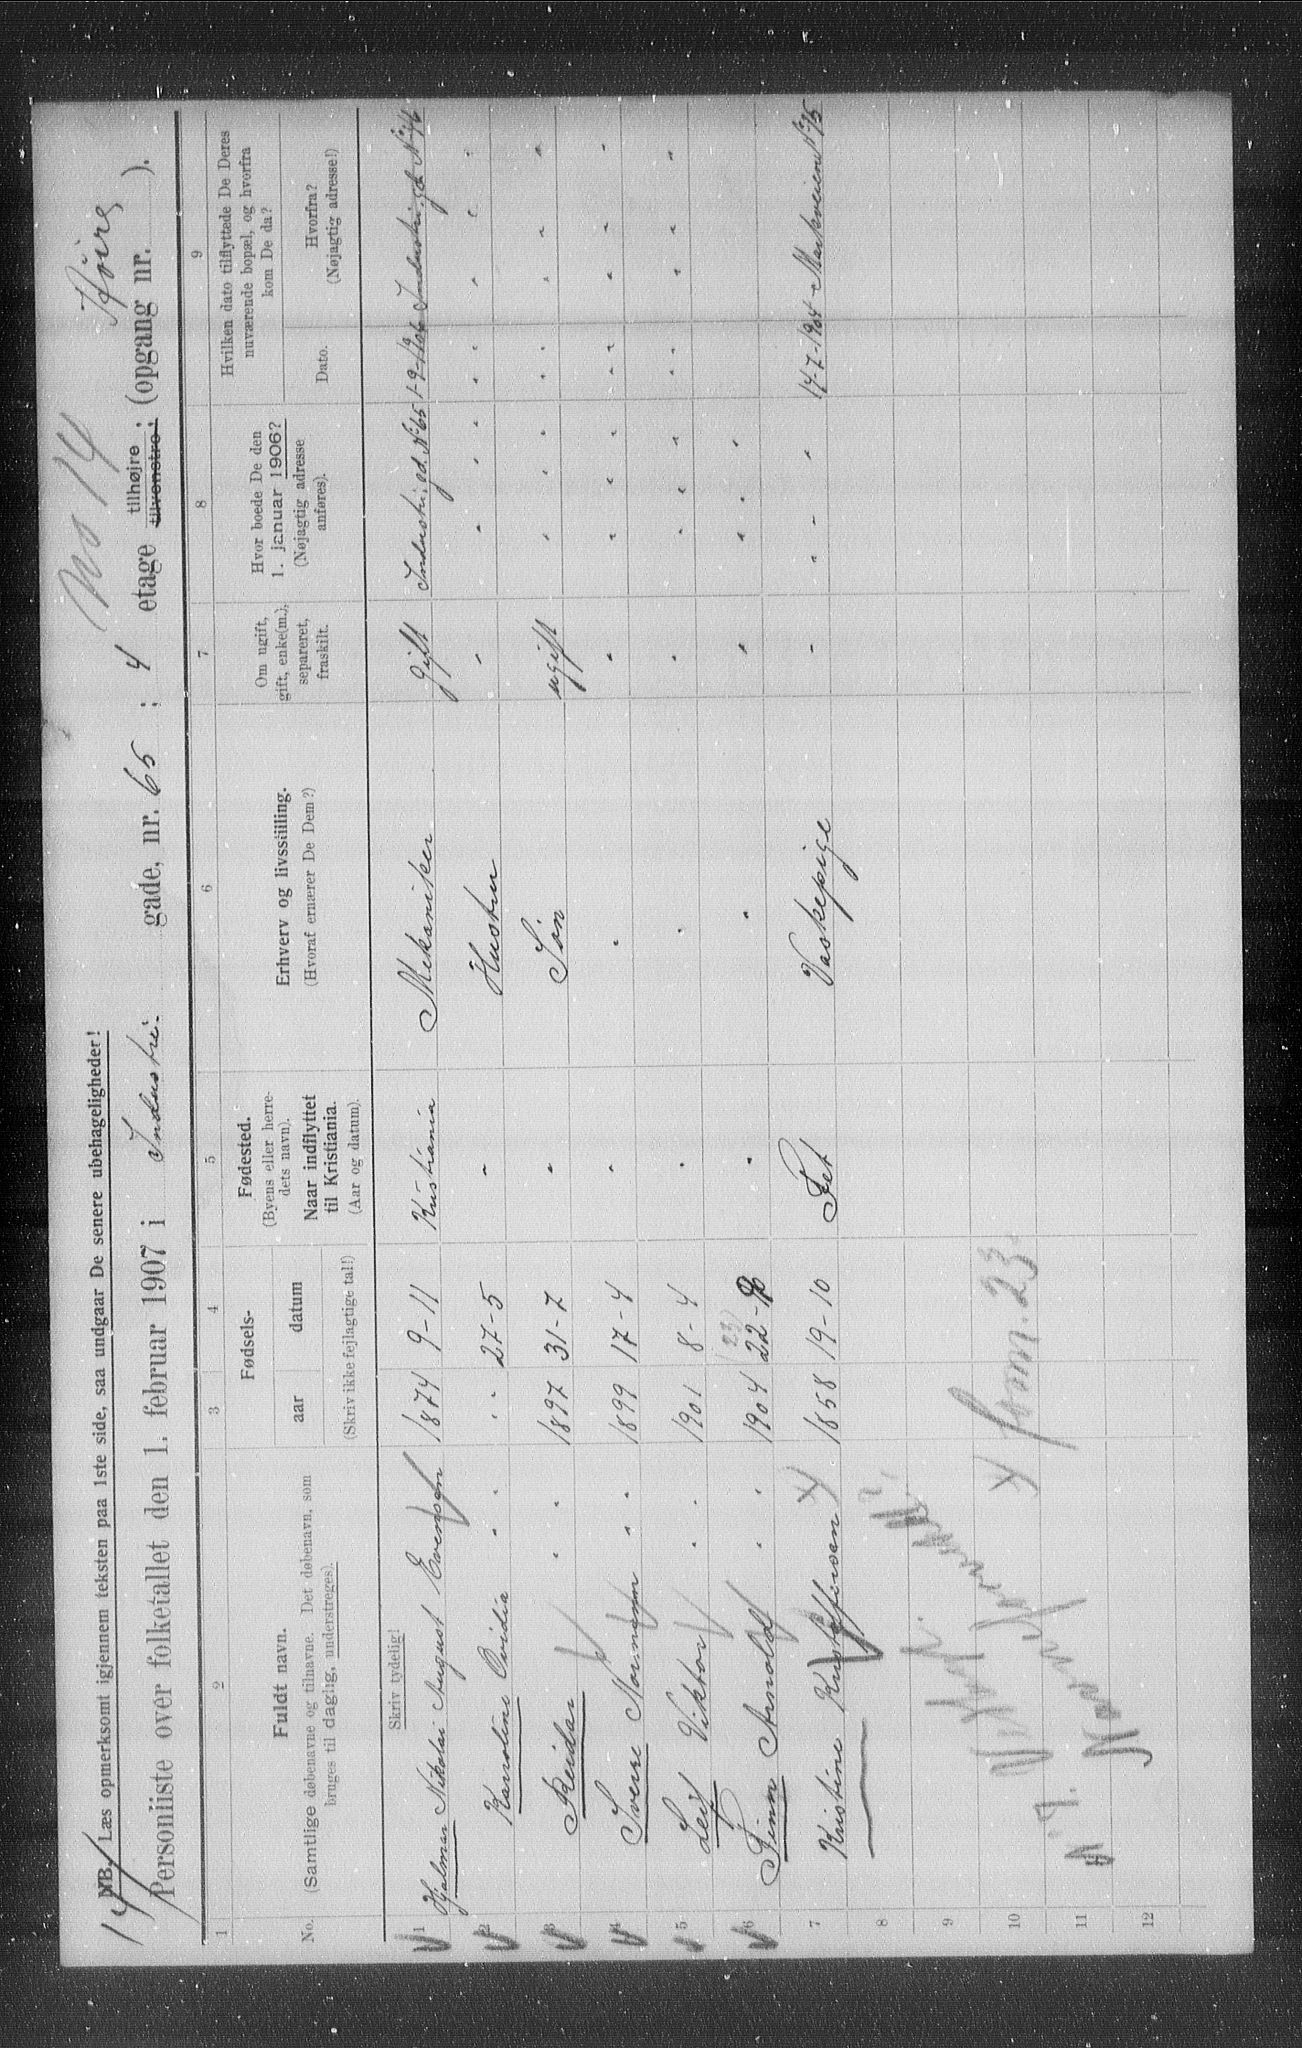 No 14
Høire
14
NB. Læs opmerksomt igjennem teksten paa 1ste side, saa undgaar De senere ubehageligheder!
Personliste over folketallet den 1. februar 1907 i Industri- gade, nr. 65 ; 4 etage tilhøjre ; tilvenstre ; (opgang nr. ).
1 2 3 4 5 6 7 8 9
No.
Fuldt navn.
(Samtlige døbenavne og tilnavne. Det døbenavn, som
bruges til daglig, understreges).
Fødsels-
aar datum
(Skriv ikke fejlagtige tal!)
Fødested.
(Byens eller herre-
dets navn).
Naar indflyttet
til Kristiania.
(Aar og datum).
Erhverv og livsstilling.
(Hvoraf ernærer De Dem?)
Om ugift,
gift, enke(m.),
separeret,
fraskilt.
Hvor boede De den
1. januar 1906?
(Nøjagtig adresse
anføres).
Hvilken dato tilflyttede De Deres
nuværende bopæl, og hvorfra
kom De da?
Dato.
Hvorfra?
(Nøjagtig adresse!)
Skriv tydelig!
1 Hjalmar Nikolai August Evensen 1874 9-11 Kristiania Mekaniker gift Industri.gd. No 65 1-9-1906 Industri.gd. No 46
2 Karoline Ovidia " " " 27-5 " Hustru " " " " " " " " "
3 Reidar " " 1897 31-7 " Søn ugift " " " " " " "
4 Sverre Normann " " 1899 17-4 " " " " " " " " " " "
5 Leif Viktor " " 1901 8-4 " " " " " " " " " " "
(23)
6 Finn Arnold " " 1904 22- " " " " " "
7 Kristine Kristoffersen 1858 19-10 Fet Vaskepige - " - " 14-7-1904 Markveien No 75
8
9
10
11
12
X form. 23.